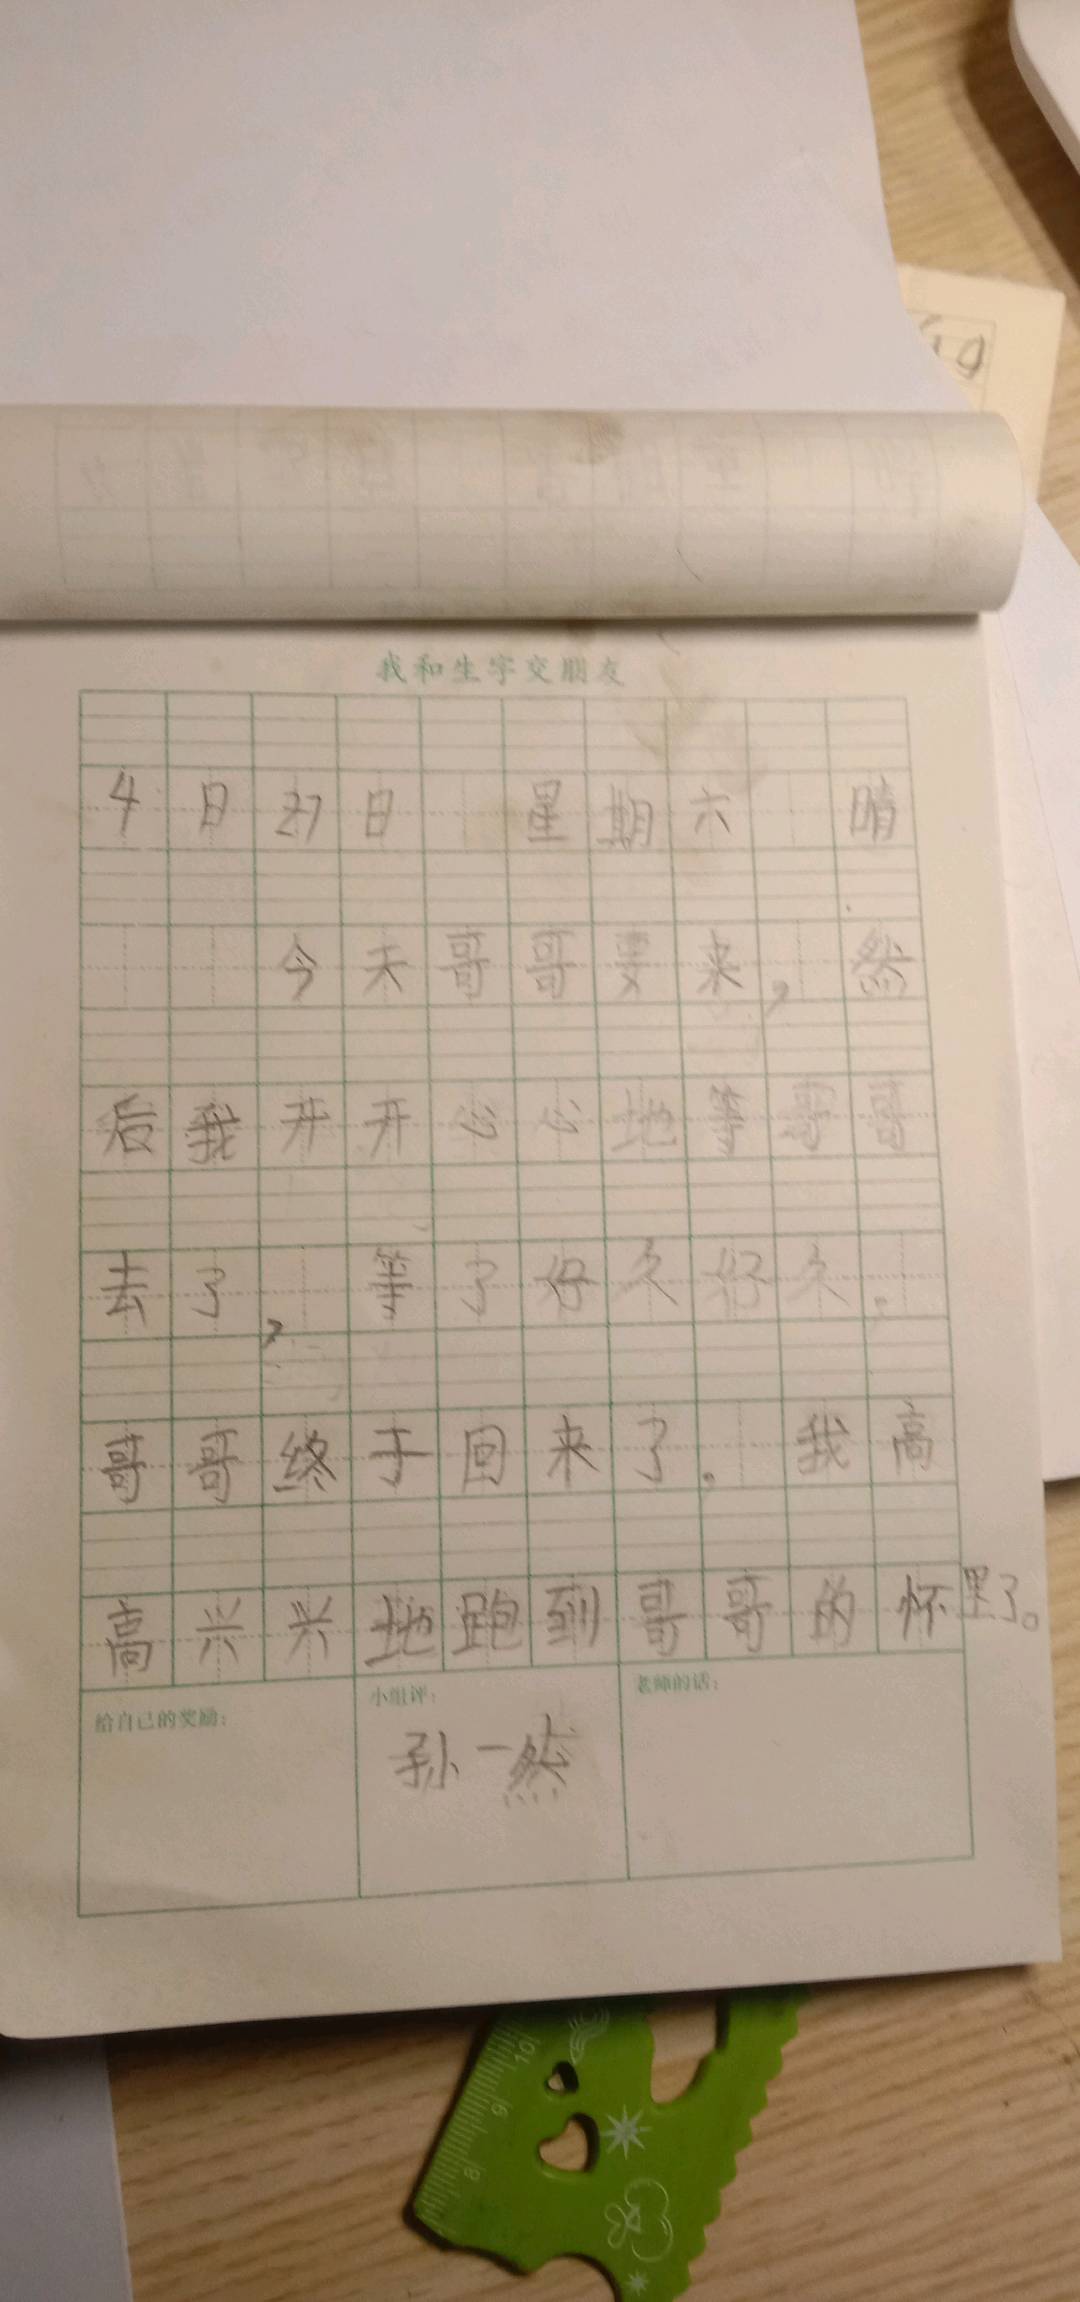 我和生字交朋友
4日27日 星期六 晴
今天哥哥要来，然
后我开开心心地等哥哥
去了，等了好久好久。
哥哥终于回来了。我高
高兴兴地跑到哥哥的怀里了。
给自己的奖励：
小组评：
孙一然
老师的话：
10
9
8